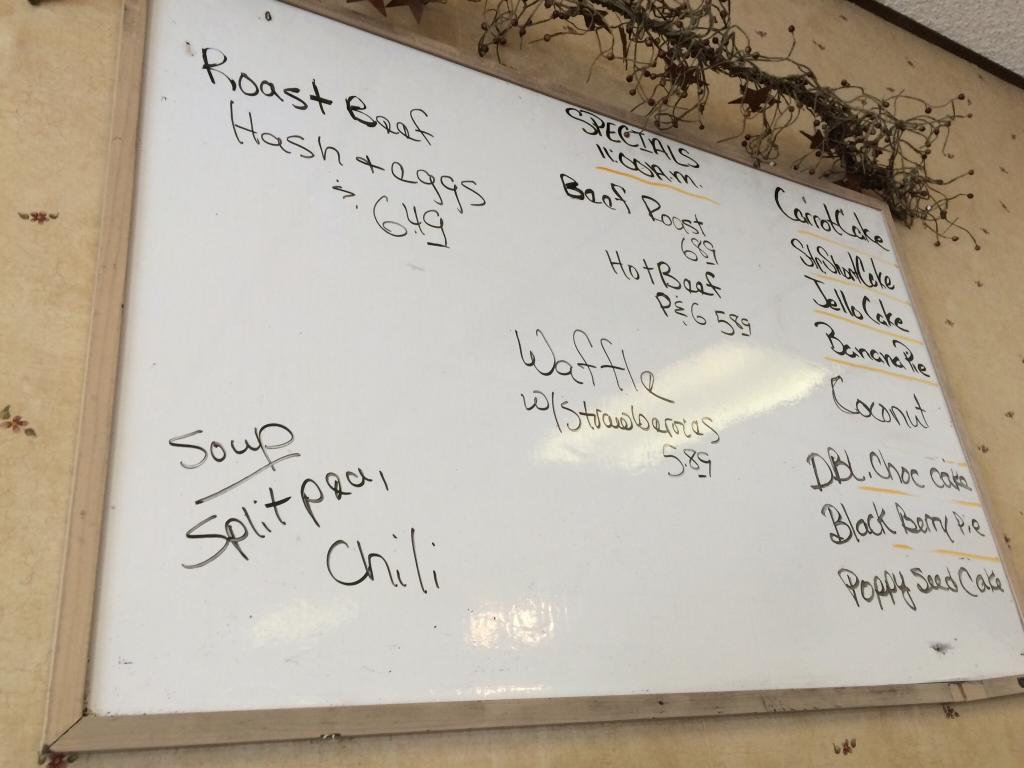 Roast Beef
Hash + eggs
6.49
Soup
Split pea,
Chili
SPECIALS
11:00 A.M.
Beef Roast
6.89
Hot Beef
P & G 5.89
Waffle
w/ Strawberries
5.89
Carrot Cake
Str Short Cake
Jello Cake
Banana Pie
Coconut
DBL. Choc cake
Black Berry Pie
Poppy Seed Cake